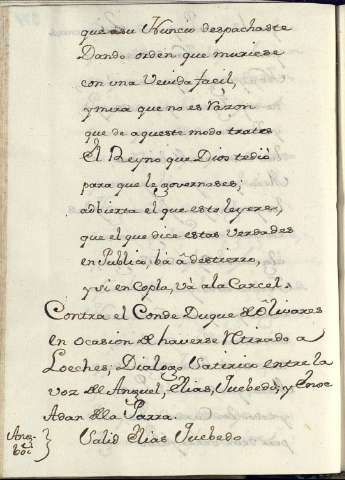 que a su Nuncio despachaste
Dando orden que muriese
con una Vevida facil,
y mira que no es Razon
que de aqueste modo trates
El Reyno que Dios te dió
para que le governases;
adbierta el que esto leyere,
que el que dice estas verdades
en Publico, bá á destierro,
y si en Copla, vá a la Carcel.
Contra el Conde Duque de Olivares
en ocasion de haverse Retirado a
Loeches; Dialogo Satirico entre la
voz del Angel, Elias, Quebedo, y Enoc
Adan de la Parra.
Salid Elias Quebedo